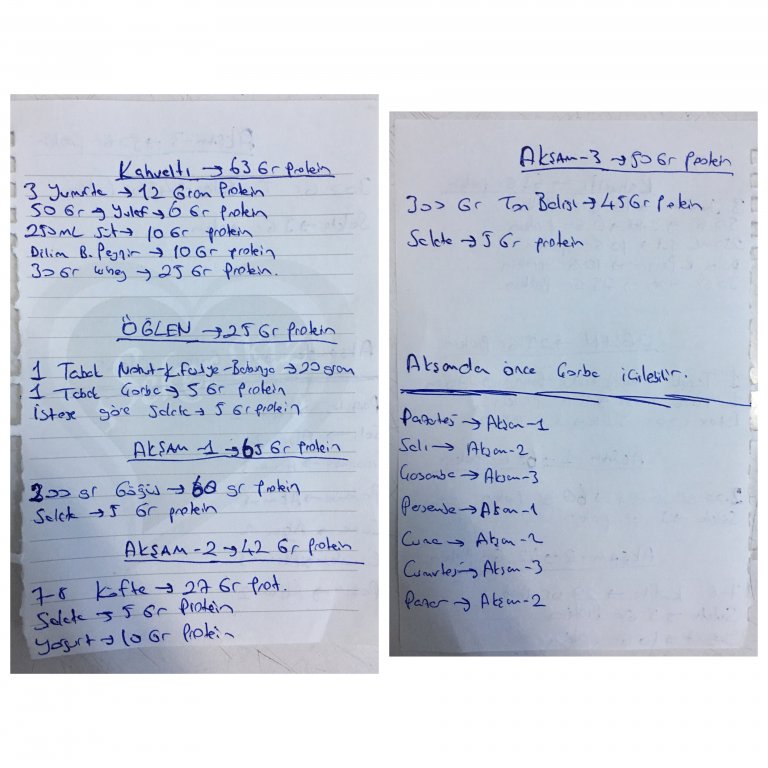 Kahvaltı → 63 Gr protein
3 Yumurta → 12 Gram Protein
50 Gr → Yulaf → 6 Gr Protein
250 mL Süt → 10 Gr protein
Dilim B. Peynir → 10 Gr protein
30 Gr whey → 25 Gr Protein.
ÖĞLEN → 25 Gr Protein
1 Tabak Nohut-K.Fasulye-Bakla → 20 gram
1 Tabak Çorba → 5 Gr Protein
İsteğe göre Salata → 5 Gr protein
AKŞAM-1 → 65 Gr protein
200 gr Göğüs → 60 gr protein
Salata → 5 Gr protein
AKŞAM-2 → 42 Gr protein
7-8 Köfte → 27 Gr prot.
Salata → 5 Gr Protein
Yoğurt → 10 Gr Protein
AKŞAM-3 → 50 Gr Protein
300 Gr Ton Balığı → 45 Gr Protein
Salata → 5 Gr protein
Akşamdan önce Çorba içilebilir.
Pazartesi → Akşam-1
Salı → Akşam-2
Çarşamba → Akşam-3
Perşembe → Akşam-1
Cuma → Akşam-2
Cumartesi → Akşam-3
Pazar → Akşam-2